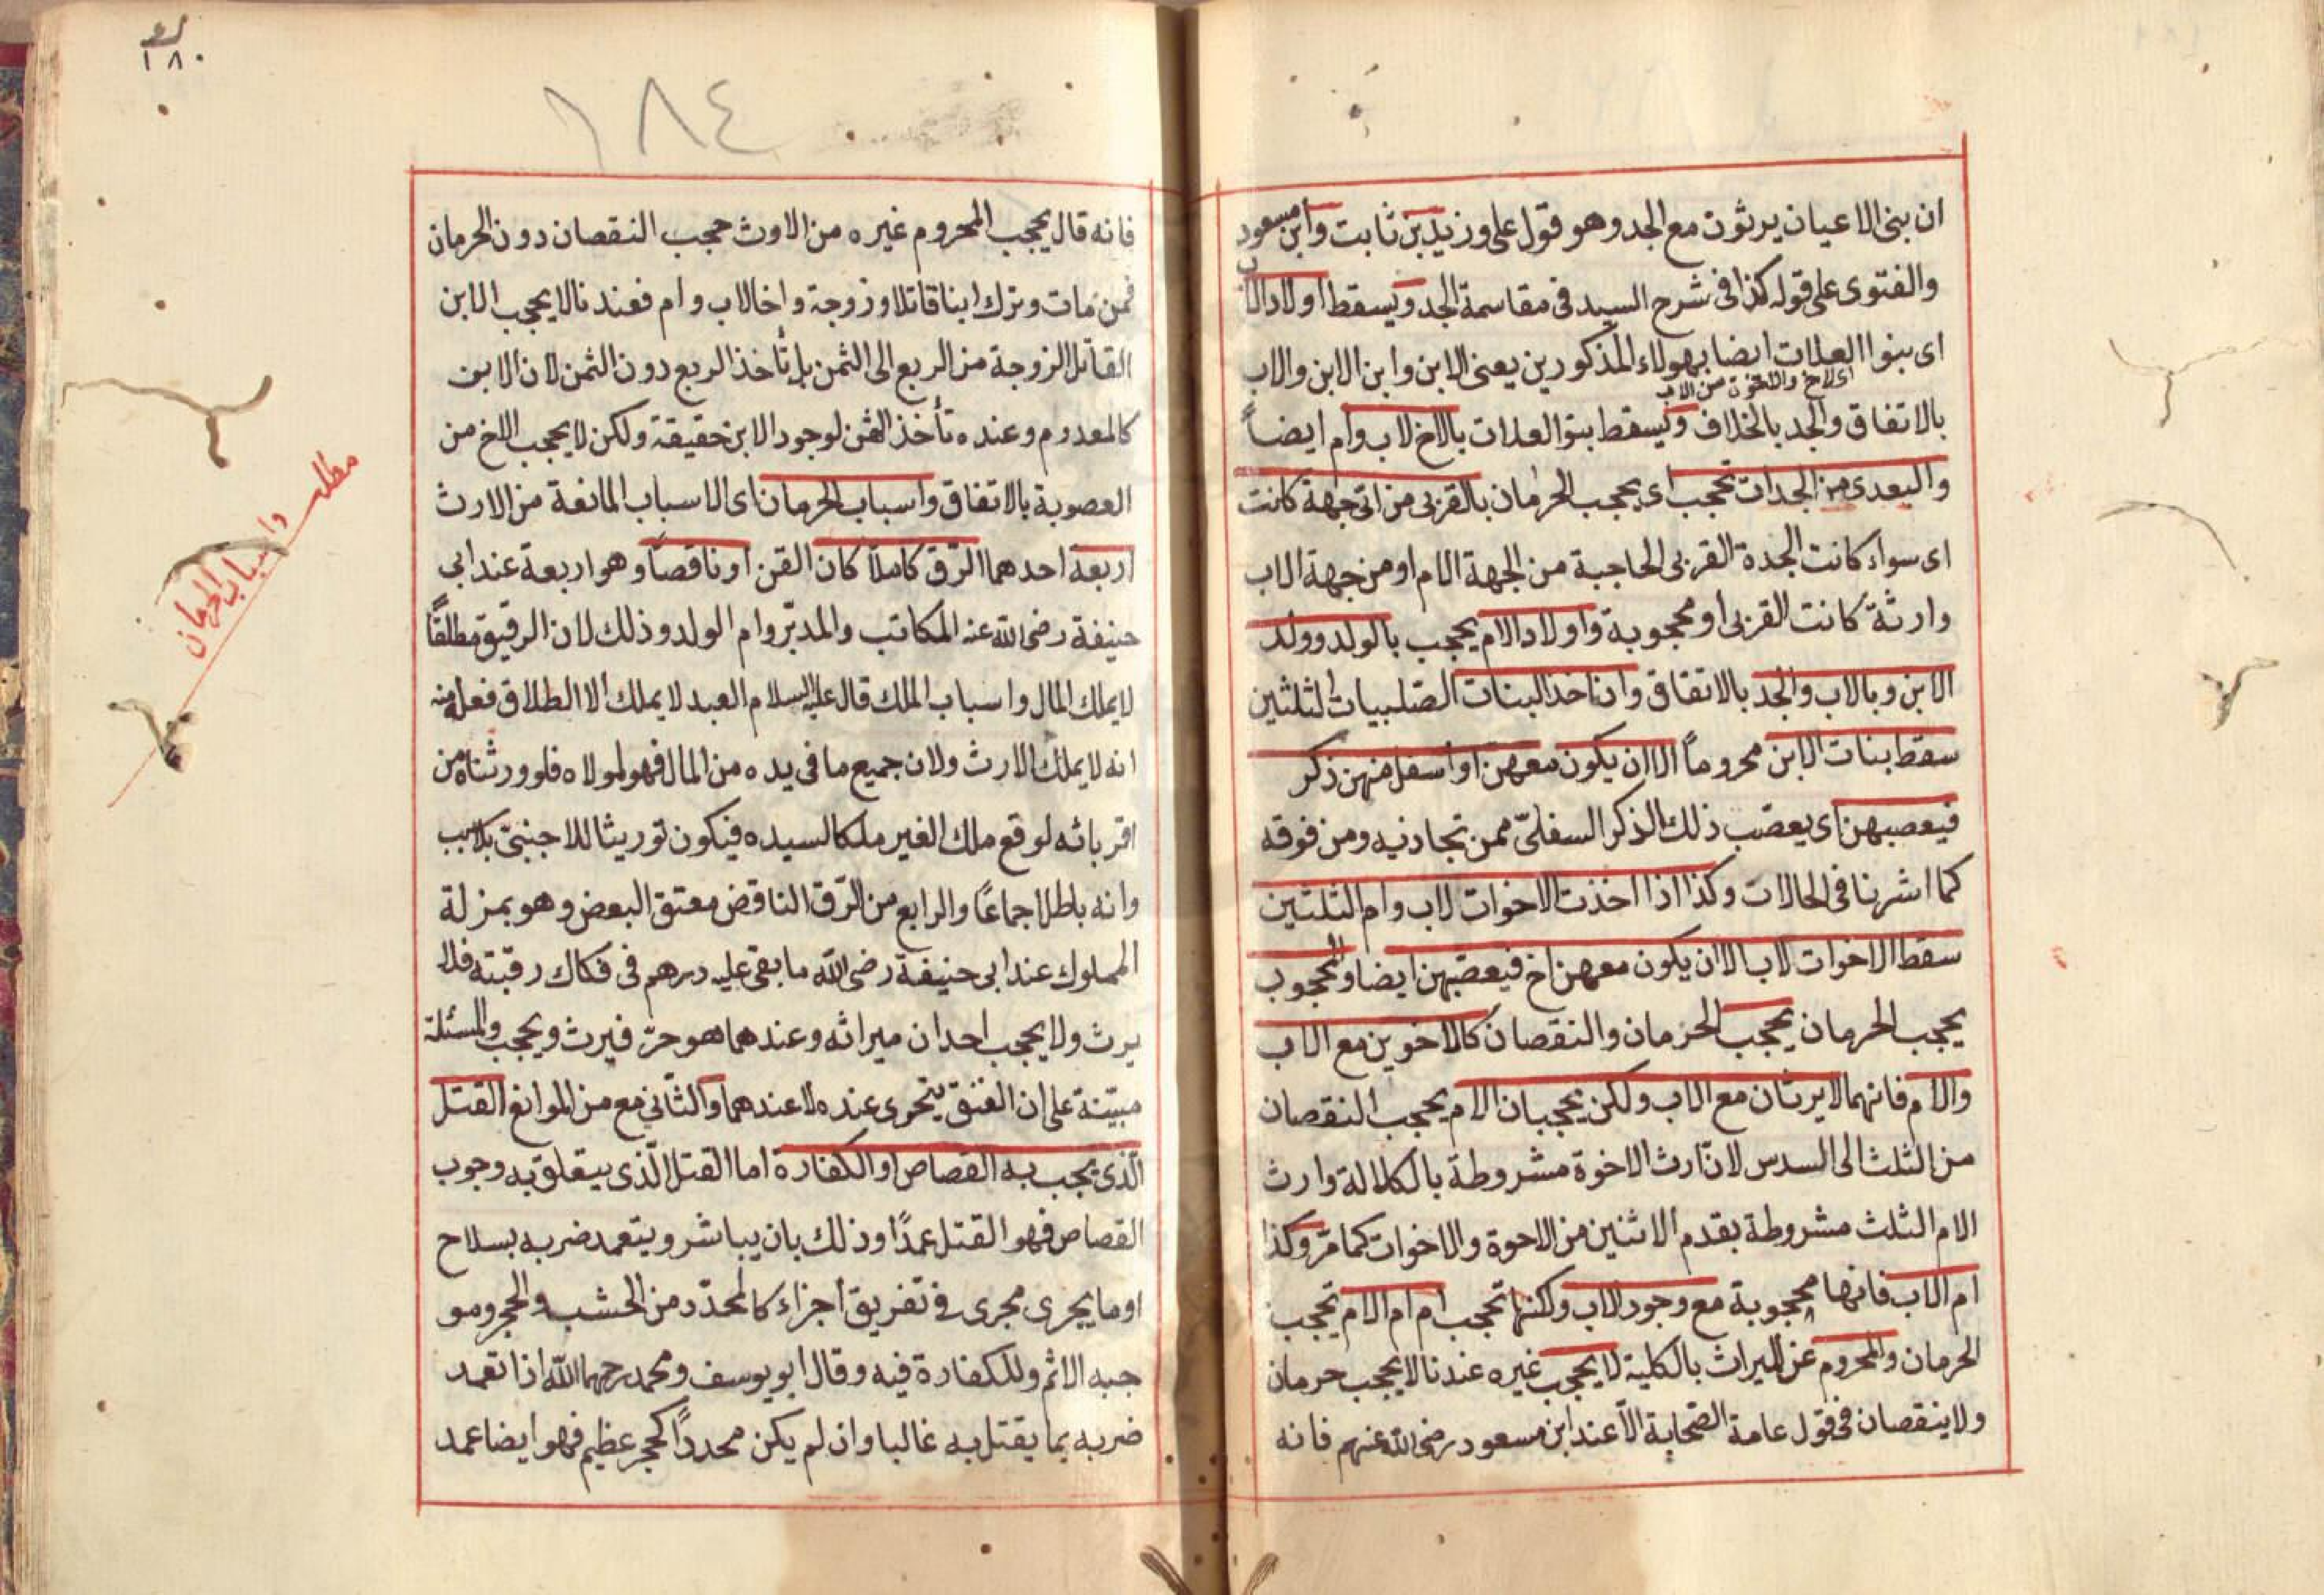 ان بنى الاعيان يرثون مع الجد وهو قول على وزيد بن ثابت وابن مسعود
والفتوى على قوله كذا فى شرح السيد فى مقاسمة الجد ويسقط اولاد الاب
اى بنوا العلات ايضا بهولاء المذكورين يعنى الابن وابن الابن والاب
اى الاخ والاخوة من الاب
بالاتفاق والجد بالخلاف ويسقط بنوا العلات بالاخ لاب وام ايضاً
والبعدى من الجدات تحجب اى يحجب الحرمان بالقربى من اى جهة كانت
اى سواء كانت الجدة القربى الحاجبة من الجهة الام او من جهة الاب
وارثة كانت القربى او محجوبة واولاد الام يحجب بالولد وولد
الابن وبالاب والجد بالاتفاق وان اخذ البنات الصلبيات الثلثين
سقط بنات الابن محروماً الا ان يكون معهن او اسفل منهن ذكر
فيعصبهن اى يعصب ذلك الذكر السفلىّ ممن تحاذيه ومن فوقه
كما اشرنا فى الحالات وكذا اذا اخذت الاخوات لاب وام الثلثين
سقط الاخوات لاب الا ان يكون معهن اخ فيعصّبهن ايضا والمحجوب
يحجب الحرمان يحجب الحرمان والنقصان كالاخوين مع الاب
والام فانهما لا يرثان مع الاب ولكن يحجبان الام يحجب النقصان
من الثلث الى السدس لانّ ارث الاخوة مشروطة بالكلالة وارث
الام الثلث مشروطة بقدم الاثنين من الاحوة والاخوات كما مرّ وكذا
ام الاب فانها محجوبة مع وجود الاب ولكنها تحجب ام ام الام تحجب
الحرمان والمحروم عن الميراث بالكلية لا يحجب غيره عندنا لا يحجب حرمان
ولا ينقصان فى قول عامة الصّحابة الّا عند ابن مسعود رضى الله عنهم فانه
١٨٠
١٨٤
فانه قال يحجب المحروم غيره من الاوث حجب النقصان دون الحرمان
فمن مات وترك ابنا قاتلا وزوجة واخا لاب وام فعندنا لا يحجب الابن
القاتل الزوجة من الربع الى الثمن بل تأخذ الربع دون الثمن لان الابن
كالمعدوم وعنده تأخذ الثمن لوجود الابن حقيقة ولكن لا يحجب الاخ من
العصوبة بالاتفاق واسباب الحرمان اى الاسباب المانعة من الارث
اربعة احدهما الرّق كاملاً كان القن او ناقصاً وهو اربعة عند ابى
حنيفة رضى الله عنه المكاتب والمدبّر وام الولد وذلك لان الرقيق مطلقاً
لا يملك المال واسباب الملك قال عليه السلام العبد لا يملك الا الطلاق فعلم منه
انه لا يملك الارث ولان جميع ما فى يده من المال فهو لمولاه فلو ورثناه من
اقربائه لوقع ملك الغير ملكا لسيده فيكون توريثا للاجنبىّ بلا سبب
وانه باطل اجماعًا والرابع من الرّق الناقص معتق البعض وهو بمنزلة
المملوك عند ابى حنيفة رضى الله ما بقى عليه درهم فى فكاك رقبته فلا
يرث ولا يحجب احدان ميراثه وعندهما هو حرّ فيرث ويحجب والمسئلة
مبيّنة على ان العتق يتجزى عنده لا عندهما والثّانى مع من الموانع القتل
الّذى يجب به القصاص او الكفارة اما القتل الّذى يتعلق به وجوب
القصاص فهو القتل عمدًا وذلك بان يباشر ويتعمد ضربه بسلاح
او ما يجرى مجرى فى تفريق اجزاء كالمحدّد من الخشب والحجر ومو
جبه الاثم وللكفارة فيه وقال ابو يوسف ومحمد رحمهما الله اذا تعمد
ضربه بما يقتل به غالبا وان لم يكن محدداً كحجر عظيم فهو ايضا عمد
مطلب
واسباب الحرمان